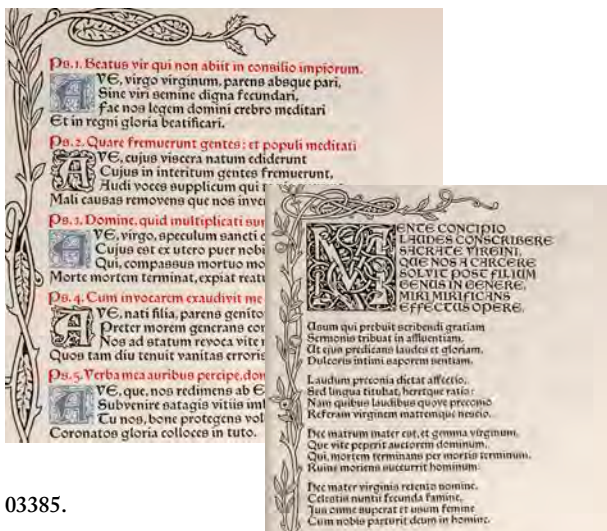 Ps.1. Beatus vir qui non abiit in consilio impiorum.
AVE, virgo virginum, parens absque pari,
Sine viri semine digna fecundari,
Fac nos legem domini crebro meditari
Et in regni gloria beatificari.
Ps.2. Quare fremuerunt gentes: et populi meditati
AVE, cujus viscera natum ediderunt
Cujus in interitum gentes fremuerunt,
Audi voces supplicum qui
Mali causas removens que nos inve
Ps.3. Domine, quid multiplicati sun
AVE, virgo, speculum sancti
Cujus est ex utero puer nobi
Qui, compassus mortuo mo
Morte mortem terminat, expiat reatu
Ps.4. Cum invocarem exaudivit me
AVE, nati filia, parens genito
Preter morem generans cor
Nos ad statum revoca vite
Quos tam diu tenuit vanitas erroris
Ps.5. Verba mea auribus percipe, don
AVE, que, nos redimens ab E
Subvenire satagis vitiis imb
Tu nos, bone protegens vol
Coronatos gloria colloces in tuto.
MENTE CONCIPIO
LAUDES CONSCRIBERE
SACRATE VIRGINI,
QUE NOS A CARCERE
SOLVIT POST FILIUM
GENUS IN GENERE,
MIRI MIRIFICANS
EFFECTUS OPERE.
Usum qui prebuit scribendi gratiam
Sermonis tribuat in affluentiam,
Ut ejus predicans laudes et gloriam,
Dulcoris intimi saporem sentiam.
Laudum preconia dictat affectio,
Sed lingua titubat, heretque ratio:
Nam quibus laudibus quove preconio
Referam virginem matremque nescio.
Hec matrum mater est, et gemma virginum,
Que vite peperit auctorem dominum,
Qui, mortem terminans per mortis terminum,
Ruine moriens succurrit hominum.
Hec mater virginis retento nomine,
Celestis nuntii fecunda famine,
Jus omne superat et usum femine
Cum nobis parturit deum in homine.
03385.